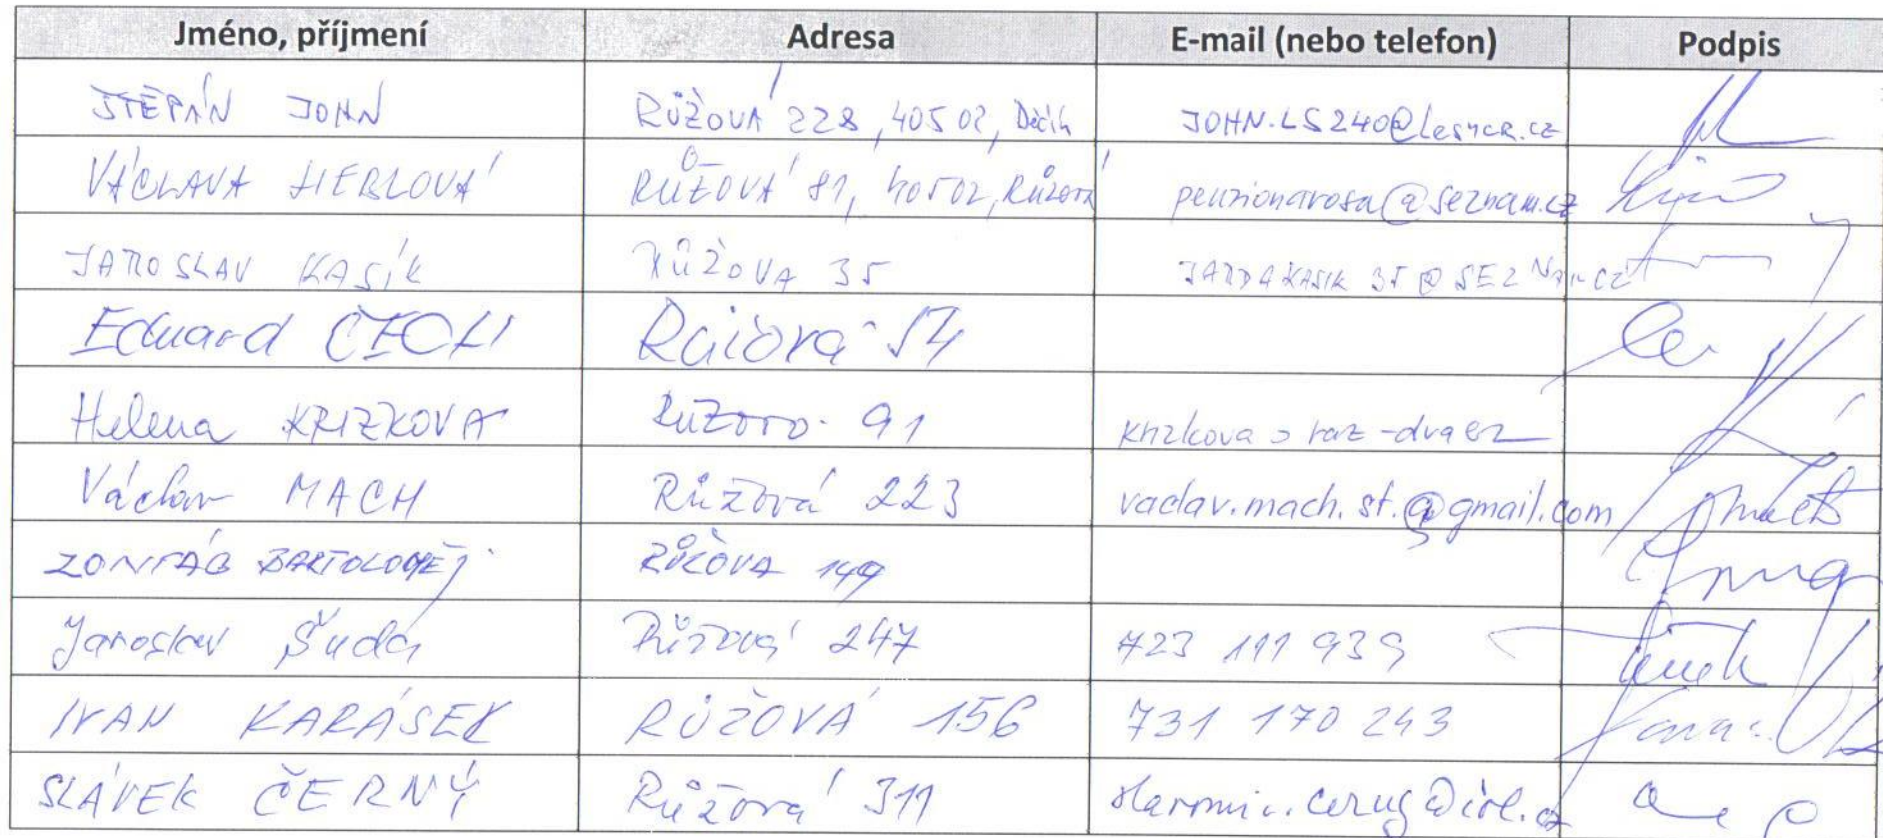 Jméno, příjmení Adresa E-mail (nebo telefon) Podpis
ŠTĚPÁN JOHN RŮŽOVÁ 228, 405 02, Děčín JOHN.LS240@lesycr.cz
VÁCLAVA HIEBLOVÁ RŮŽOVÁ 81, 40502, Růžová penzionarosa@seznam.cz
JAROSLAV KASÍK RŮŽOVA 35 JARDAKASIK35@SEZNAM.CZ
Eduard ČECH Růžová 54
Helena KRIZKOVA Růžová 91
Václav MACH Růžová 223 vaclav.mach.st.@gmail.com
BARTOLOMĚJ RŮŽOVA 149
Jaroslav Šuda Růžová 247 723 111 939
IVAN KARÁSEK RŮŽOVÁ 156 731 170 243
SLÁVEK ČERNÝ Růžová 311